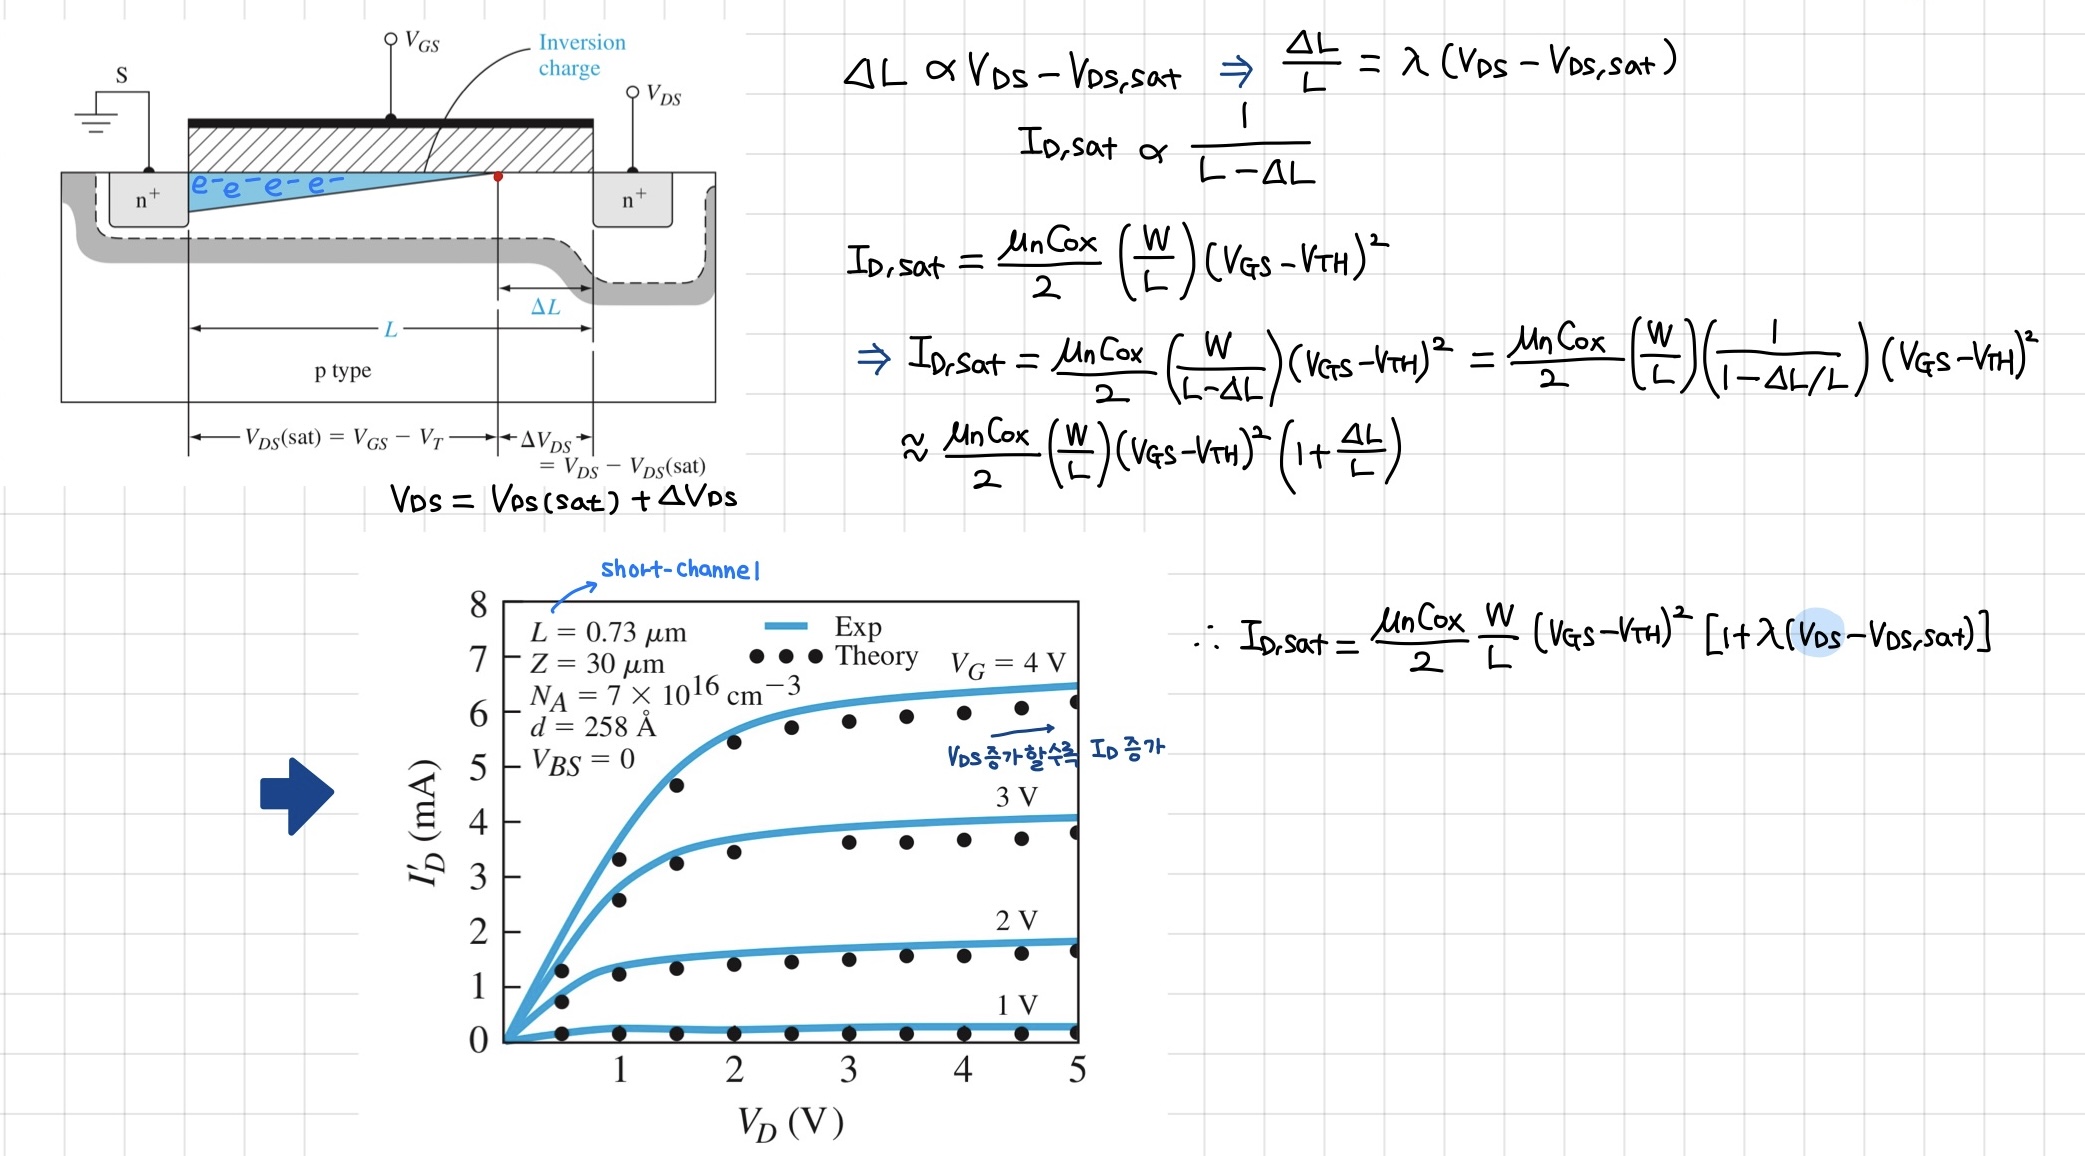 V_GS
Inversion
charge
S
V_DS
e⁻ e⁻ e⁻ e⁻
n⁺
n⁺
ΔL
L
p type
V_DS(sat) = V_GS − V_T
ΔV_DS
= V_DS − V_DS(sat)
V_DS = V_DS(sat) + ΔV_DS
ΔL ∝ V_DS − V_DS,sat ⇒ ΔL/L = λ(V_DS − V_DS,sat)
I_D,sat ∝ 1/(L−ΔL)
I_D,sat = μnCox/2 (W/L)(V_GS−V_TH)²
⇒ I_D,sat = μnCox/2 (W/(L−ΔL))(V_GS−V_TH)² = μnCox/2 (W/L)(1/(1−ΔL/L))(V_GS−V_TH)²
≈ μnCox/2 (W/L)(V_GS−V_TH)²(1+ΔL/L)
short-channel
8
7
6
5
4
3
2
1
0
L = 0.73 μm
Z = 30 μm
N_A = 7 × 10¹⁶ cm⁻³
d = 258 Å
V_BS = 0
Exp
Theory
V_G = 4 V
V_DS 증가할수록 I_D 증가
3 V
2 V
1 V
I′_D (mA)
1 2 3 4 5
V_D (V)
∴ I_D,sat = μnCox/2 W/L (V_GS−V_TH)² [1+λ(V_DS−V_DS,sat)]